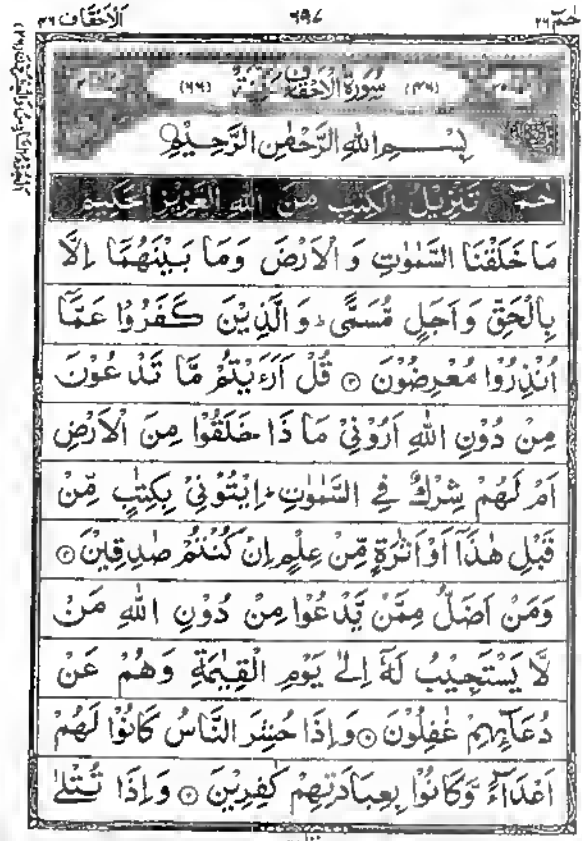 حٰمٓ ٢٦ ٦٩٨ اَلْاَحْقَاف ٤٦
(٤٦) سُوْرَةُ الْاَحْقَافِ مَكِّيَّةٌ (٦٦)
بِسْمِ اللّٰهِ الرَّحْمٰنِ الرَّحِيْمِ
حٰمٓ تَنْزِيْلُ الْكِتٰبِ مِنَ اللّٰهِ الْعَزِيْزِ الْحَكِيْمِ
مَا خَلَقْنَا السَّمٰوٰتِ وَ الْاَرْضَ وَمَا بَيْنَهُمَآ اِلَّا
بِالْحَقِّ وَ اَجَلٍ مُّسَمًّى ؕ وَ الَّذِيْنَ كَفَرُوْا عَمَّآ
اُنْذِرُوْا مُعْرِضُوْنَ ۝٣ قُلْ اَرَءَيْتُمْ مَّا تَدْعُوْنَ
مِنْ دُوْنِ اللّٰهِ اَرُوْنِيْ مَا ذَا خَلَقُوْا مِنَ الْاَرْضِ
اَمْ لَهُمْ شِرْكٌ فِي السَّمٰوٰتِ ؕ اِيْتُوْنِيْ بِكِتٰبٍ مِّنْ
قَبْلِ هٰذَآ اَوْ اَثٰرَةٍ مِّنْ عِلْمٍ اِنْ كُنْتُمْ صٰدِقِيْنَ ۝٤
وَمَنْ اَضَلُّ مِمَّنْ يَّدْعُوْا مِنْ دُوْنِ اللّٰهِ مَنْ
لَّا يَسْتَجِيْبُ لَهٗٓ اِلٰى يَوْمِ الْقِيٰمَةِ وَهُمْ عَنْ
دُعَآئِهِمْ غٰفِلُوْنَ ۝٥ وَاِذَا حُشِرَ النَّاسُ كَانُوْا لَهُمْ
اَعْدَآءً وَّكَانُوْا بِعِبَادَتِهِمْ كٰفِرِيْنَ ۝٦ وَاِذَا تُتْلٰى